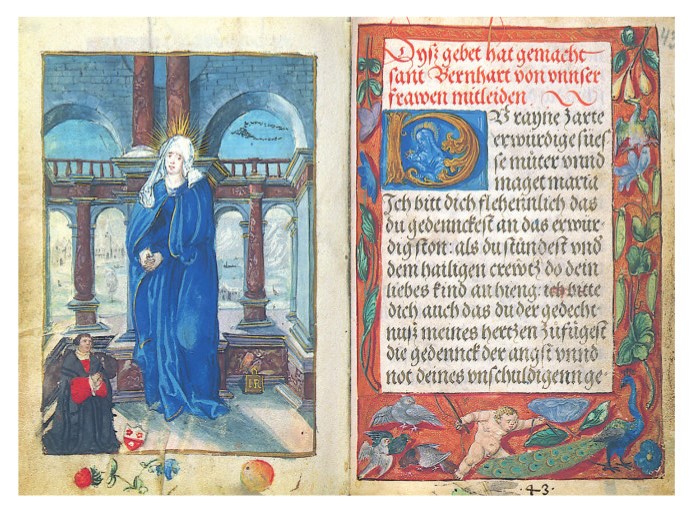 HR
43
Dysz gebet hat gemacht
sant Bernhart von vnnser
frawen mitleiden
DV rayne zarte
erwürdige sües
se müter vnnd
maget maria
Jch bitt dich fleheinlich das
du gedennckest an das erwür
dig ston: als du stündest vnd
dem hailigen crewtz do dein
liebes kind an hieng: ich bitte
dich auch das du der gedecht
nusz meines hertzen zufügest
die gedennck der angst vnnd
not deines vnschuldigenn ge-
43.